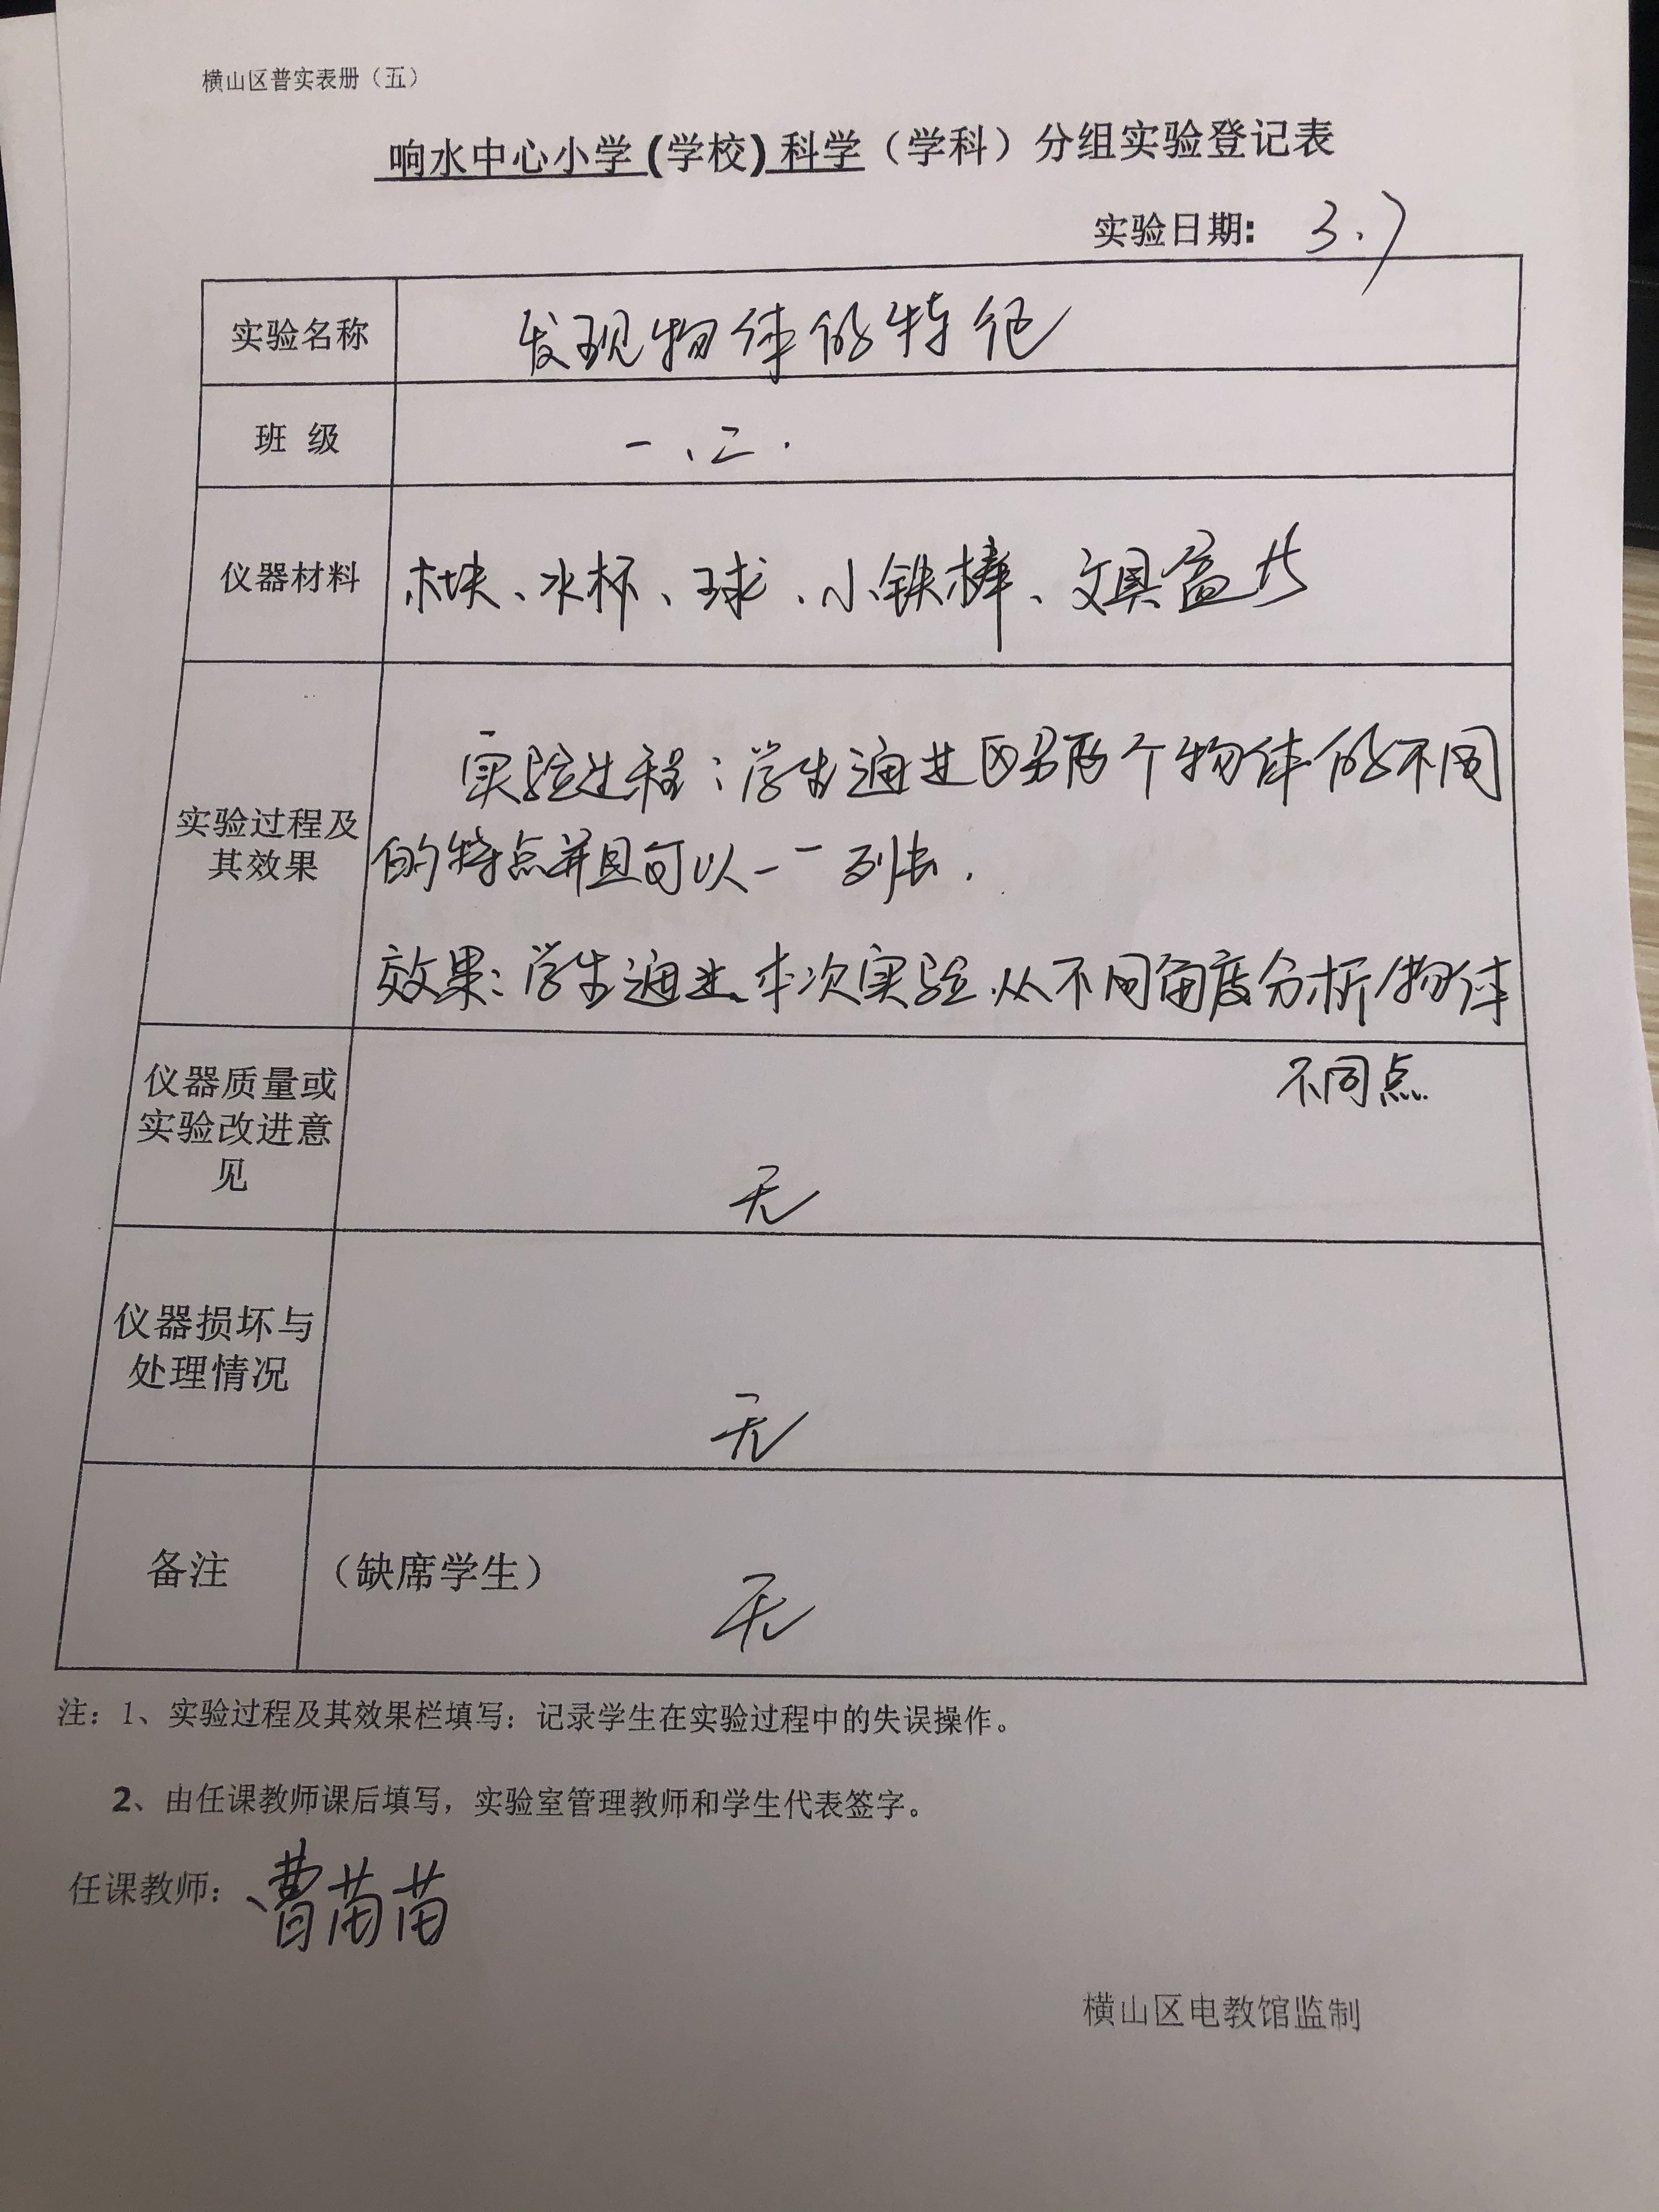 横山区普实表册（五）
响水中心小学(学校)科学（学科）分组实验登记表
实验日期: 3.7
实验名称 发现物体的特征
班 级 一、二.
仪器材料 木块、水杯、球、小铁棒、文具盒等
实验过程：学生通过区别两个物体的不同
实验过程及
其效果
的特点并且可以一一列出.
效果：学生通过本次实验从不同角度分析物体
不同点
仪器质量或
实验改进意
见
无
仪器损坏与
处理情况
无
备注 （缺席学生）
无
注：1、实验过程及其效果栏填写：记录学生在实验过程中的失误操作。
2、由任课教师课后填写，实验室管理教师和学生代表签字。
任课教师：曹苗苗
横山区电教馆监制